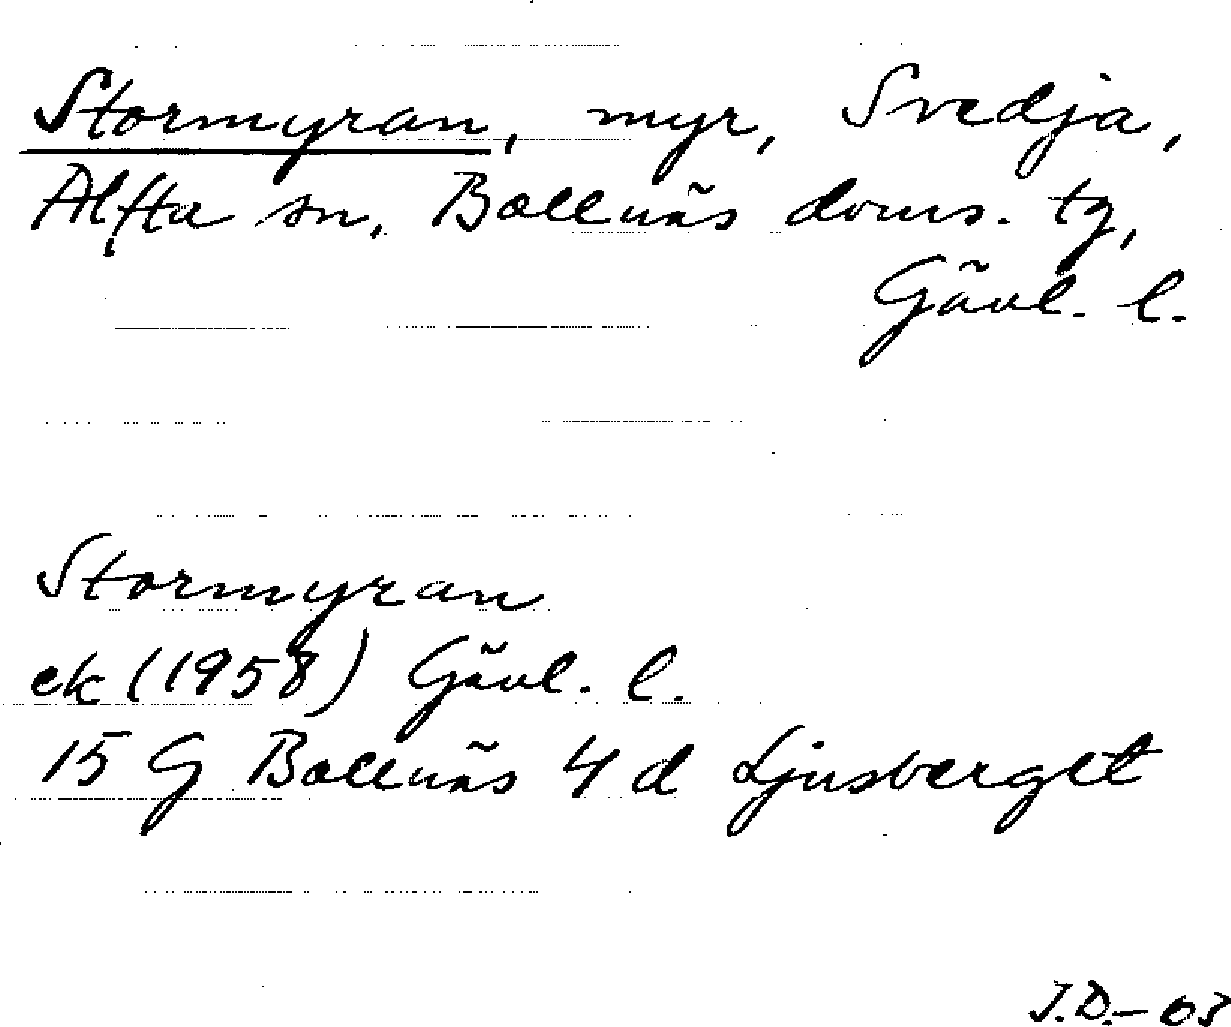 Stormyran, myr, Svedja,
Alfta sn, Bollnäs doms. tg,
Gävl. l.
Stormyran
ek (1958) Gävl. l.
15 G Bollnäs 4 d Ljusberget
J.D.–03